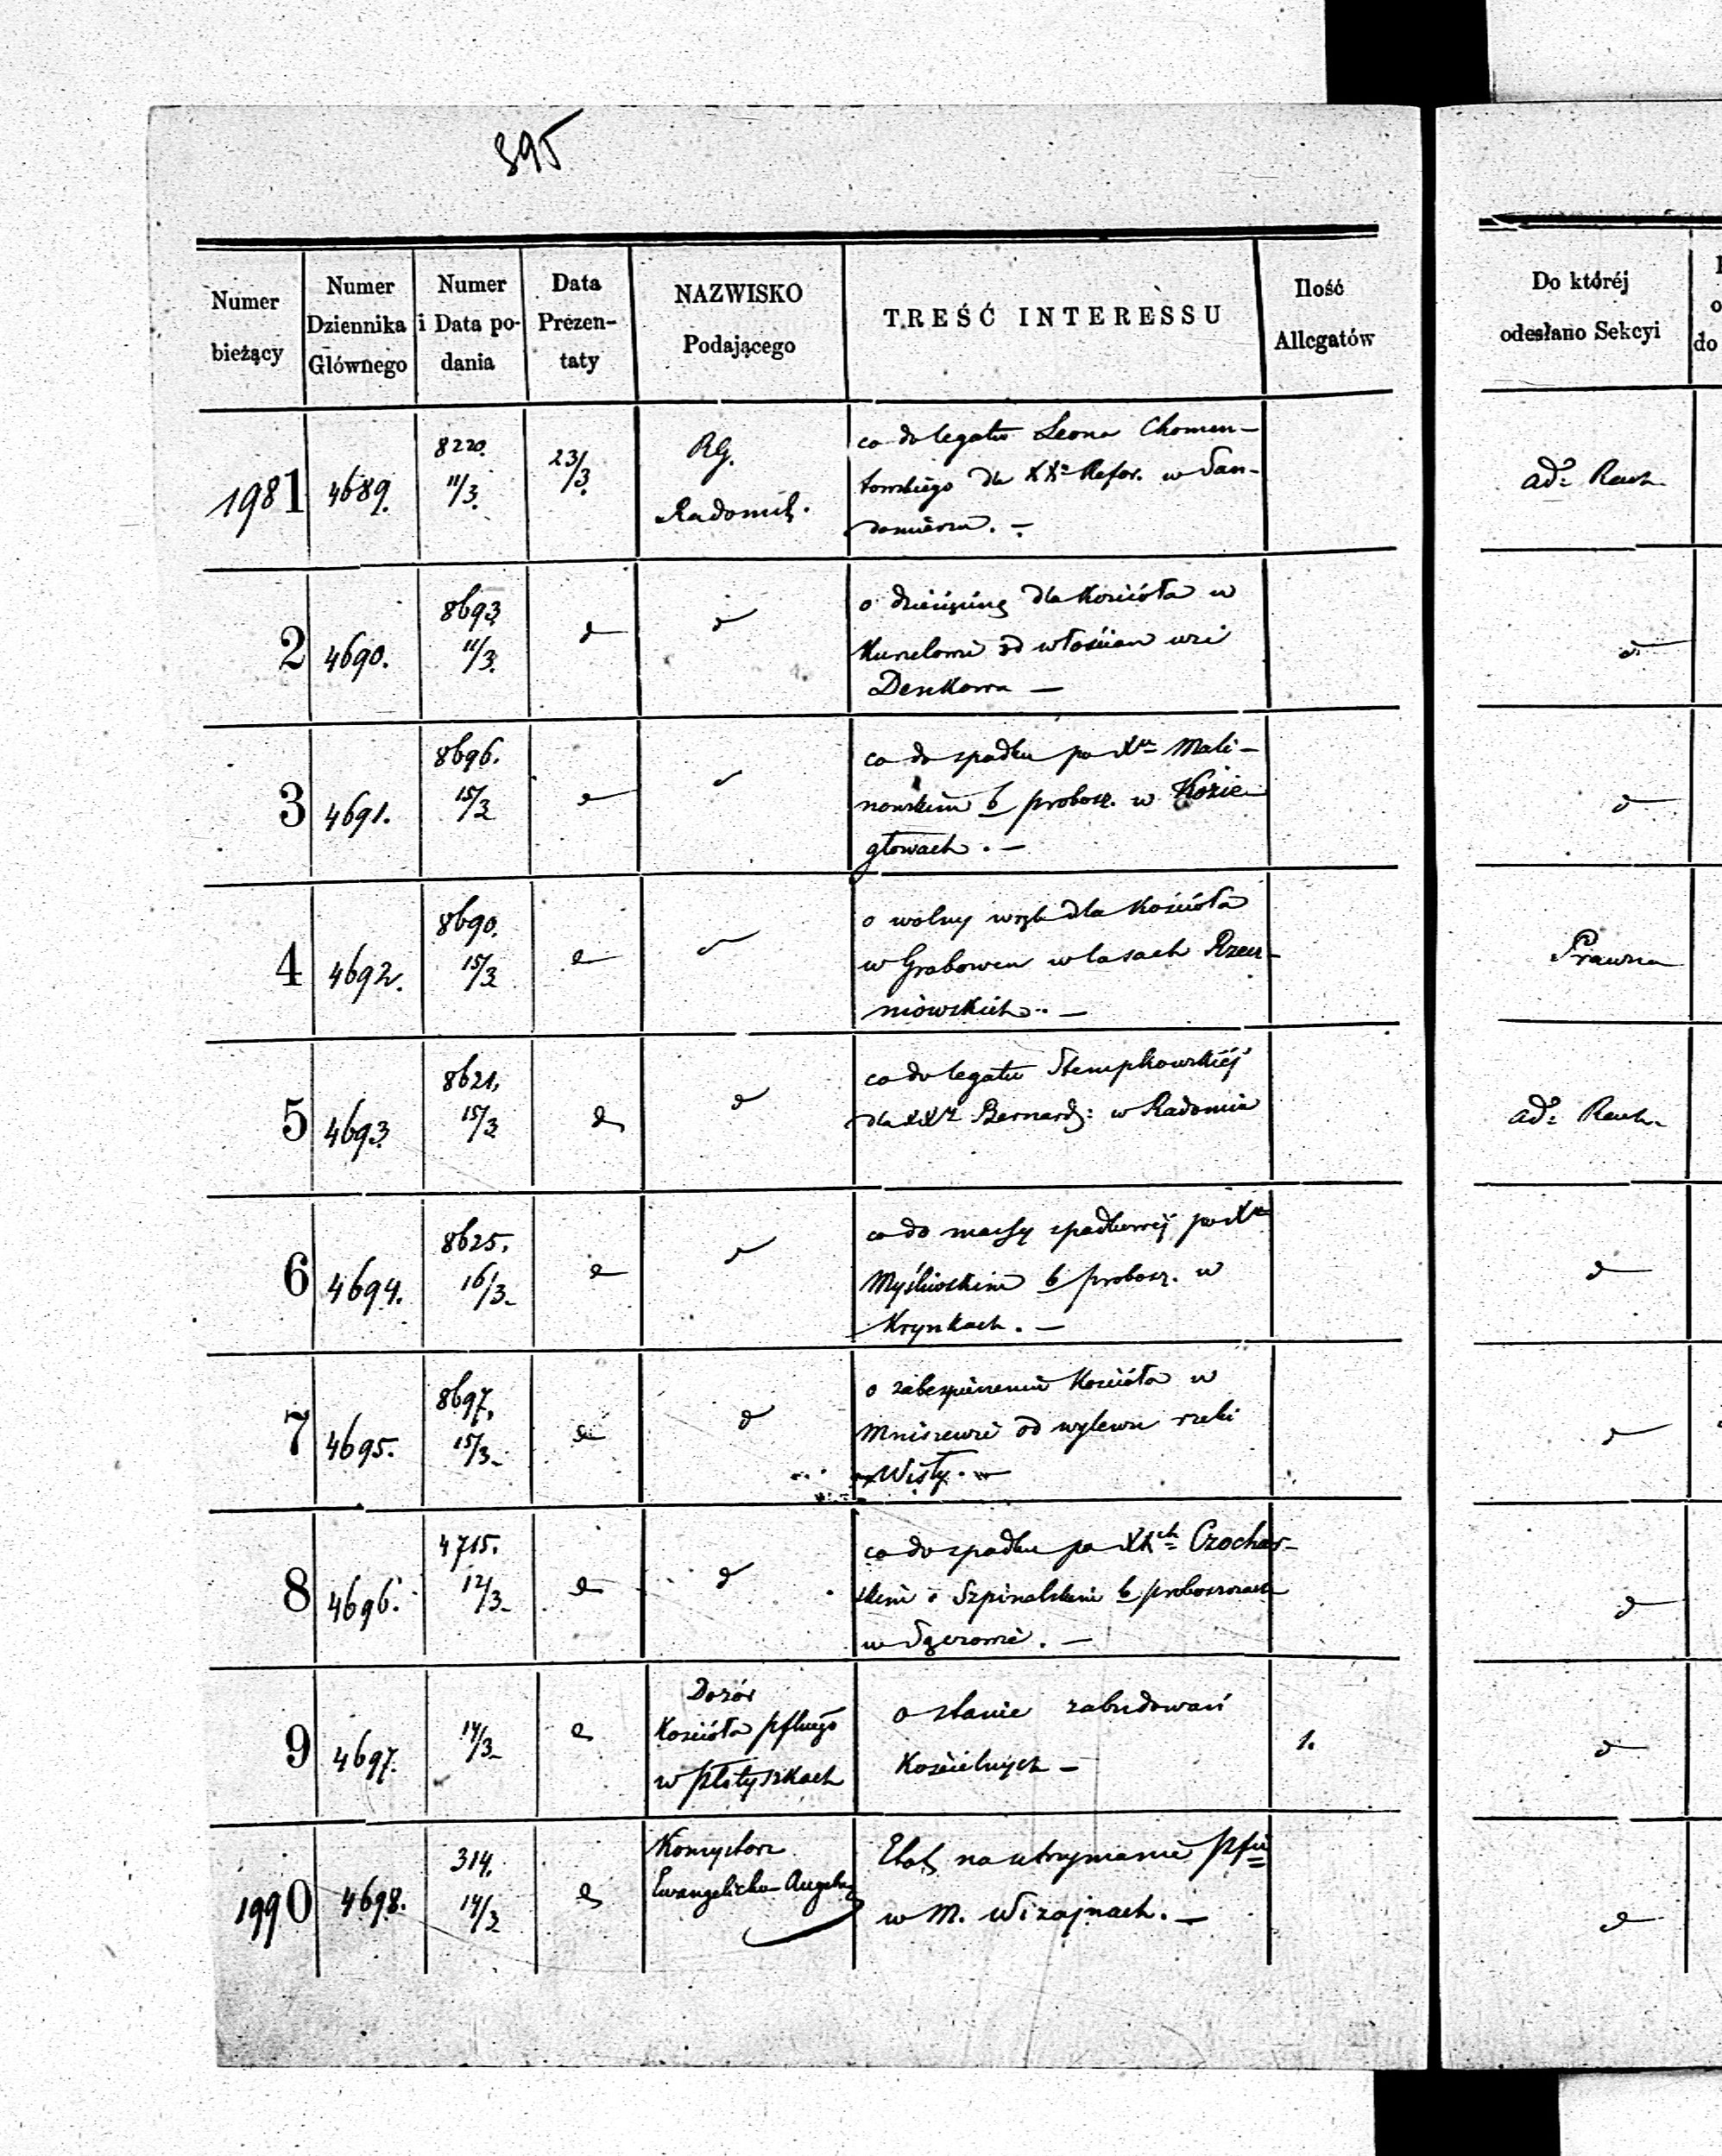 395
Numer bieżący
Numer Dziennika Głównego
Numer i Data podania
Data Prezentaty
NAZWISKO Podającego
TREŚĆ INTERESSU
Ilość Allegatów
Do któréj odesłano Sekcyi
1981 4689. 8220. 11/3. 23/3. RG. co do legatu Leona Chomen-
Radomsk. towskiego dla XXw Refor. w San-
domierzu. —
ad: Rach.
2 4690. 8693 11/3. d d o dziesięcinę dla Kościoła w
Kunelowie od włościan wsi
Denkowa —
d
3 4691. 8696. 15/3 d co do spadku po Xu Mali-
nowskim b proboszcz. w Kozie
głowach. —
d
4 4692. 8690. 15/3 d o wolny wrąb dla Kościoła
w Grabowcu w lasach Rzecz-
niowskich. —
Prawna
5 4693 8621, 15/3 d d co do legatu Stempkowskiéj
dla XXw Bernard: w Radomiu
ad: Rach.
6 4694. 8625, 16/3. d co do massy spadkowéj po Xu
Myśliwskim b probosz. w
Krynkach. —
d
7 4695. 8697, 15/3. d d o zabezpieczenie Kościoła w
Mniszewie od wylewu rzeki
Wisły. —
d
8 4696. 4715. 12/3. d d co do spadku po XXch Czochar-
skim i Szpinalskim b proboszczach
w
d
9 4697. 14/3. d Dozór o stanie zabudowań 1.
Kościoła pflnego Kościelnych —
w Płotyszkach
d
1990 4698. 314. 14/3 d Konsystorz Etat na utrzymanie Pfii
Ewangelicko-Augsbu w M. Wizajnach. —
d